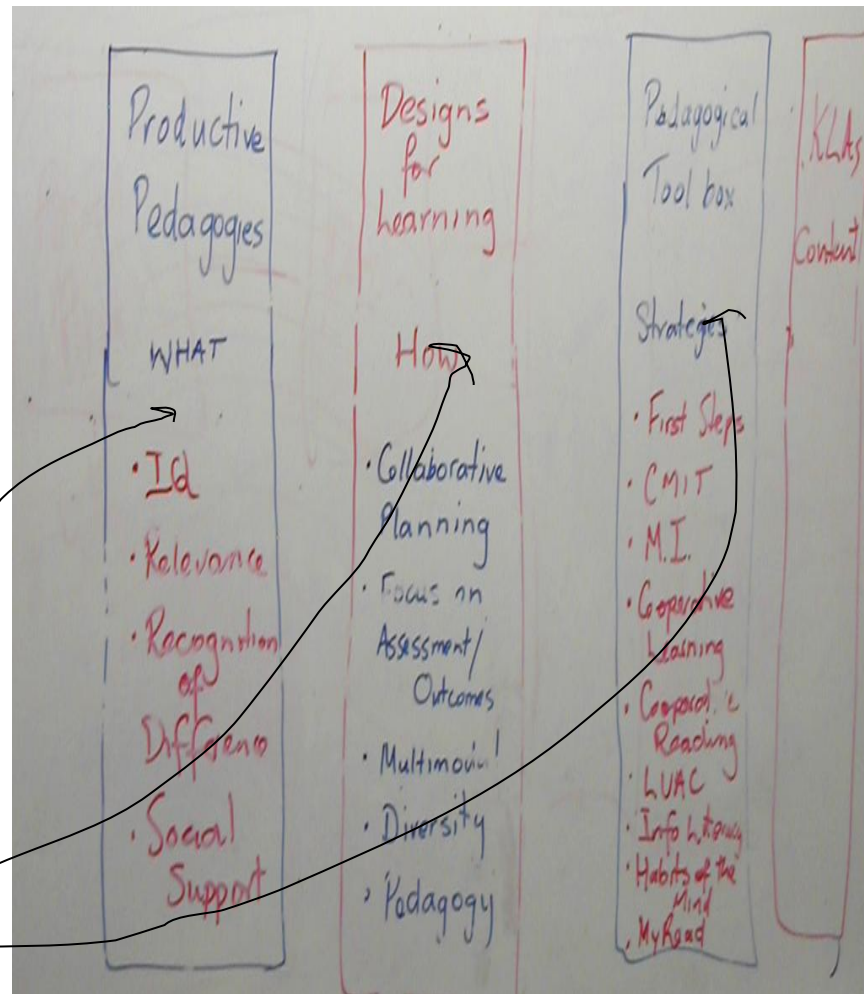 Productive
Pedagogies
WHAT
• Id
• Relevance
• Recognition
of
Difference
• Social
Support
Designs
for
Learning
How
• Collaborative
Planning
• Focus on
Assessment/
Outcomes
• Multimodal
• Diversity
• Pedagogy
Pedagogical
Tool box
Strategies
• First Steps
• CMIT
• M.I.
• Cooperative
Learning
• Cooperative
Reading
• LUAC
• Info Literacy
• Habits of the
Mind
• MyRead
KLAs
Content